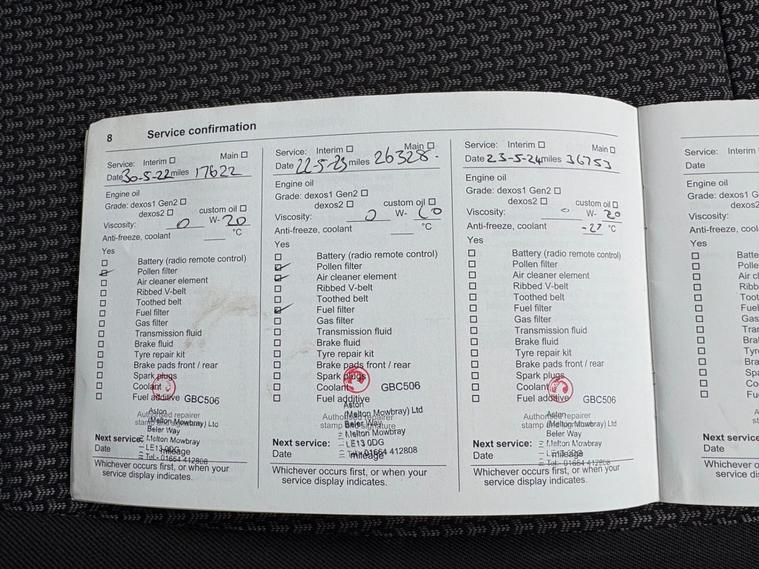 8 Service confirmation
Service: Interim ☐ Main ☐
Date 30-5-22 miles 17622
Engine oil
Grade: dexos1 Gen2 ☐
dexos2 ☐ custom oil ☐
Viscosity: 0 W- 20
Anti-freeze, coolant °C
Yes
☐ Battery (radio remote control)
☑ Pollen filter
☐ Air cleaner element
☐ Ribbed V-belt
☐ Toothed belt
☐ Fuel filter
☐ Gas filter
☐ Transmission fluid
☐ Brake fluid
☐ Tyre repair kit
☐ Brake pads front / rear
☐ Spark plugs
☐ Coolant
☐ Fuel additive GBC506
Authorised repairer
stamp
Aston
(Melton Mowbray) Ltd
Beler Way
Melton Mowbray
LE13 0DG
Tel:- 01664 412808
Next service:
Date mileage
Whichever occurs first, or when your
service display indicates.
Service: Interim ☐ Main ☐
Date 22-5-23 miles 26328
Engine oil
Grade: dexos1 Gen2 ☐
dexos2 ☐ custom oil ☐
Viscosity: 0 W-
Anti-freeze, coolant °C
Yes
☐ Battery (radio remote control)
☑ Pollen filter
☑ Air cleaner element
☐ Ribbed V-belt
☐ Toothed belt
☑ Fuel filter
☐ Gas filter
☐ Transmission fluid
☐ Brake fluid
☐ Tyre repair kit
☐ Brake pads front / rear
☐ Spark plugs
☐ Coolant GBC506
☐ Fuel additive
Authorised repairer
stamp and signature
Aston
(Melton Mowbray) Ltd
Beler Way
Melton Mowbray
LE13 0DG
Tel:- 01664 412808
Next service:
Date mileage
Whichever occurs first, or when your
service display indicates.
Service: Interim ☐ Main ☐
Date 23-5-24 miles 36753
Engine oil
Grade: dexos1 Gen2 ☐
dexos2 ☐ custom oil ☐
Viscosity: 0 W- 20
Anti-freeze, coolant -27 °C
Yes
☐ Battery (radio remote control)
☐ Pollen filter
☐ Air cleaner element
☐ Ribbed V-belt
☐ Toothed belt
☐ Fuel filter
☐ Gas filter
☐ Transmission fluid
☐ Brake fluid
☐ Tyre repair kit
☐ Brake pads front / rear
☐ Spark plugs
☐ Coolant
☐ Fuel additive GBC506
Authorised repairer
stamp
Aston
(Melton Mowbray) Ltd
Beler Way
Melton Mowbray
LE13 0DG
Tel:- 01664 412808
Next service:
Date mileage
Whichever occurs first, or when your
service display indicates.
Service: Interim
Date
Engine oil
Grade: dexos1 G
dexos2
Viscosity:
Anti-freeze, cool
Yes
☐ Batte
☐ Polle
☐ Air c
☐ Ribb
☐ Toot
☐ Fuel
☐ Gas
☐ Tra
☐ Bra
☐ Tyr
☐ Bra
☐ Spa
☐ Co
☐ Fu
Next service
Date
Whichever o
service di